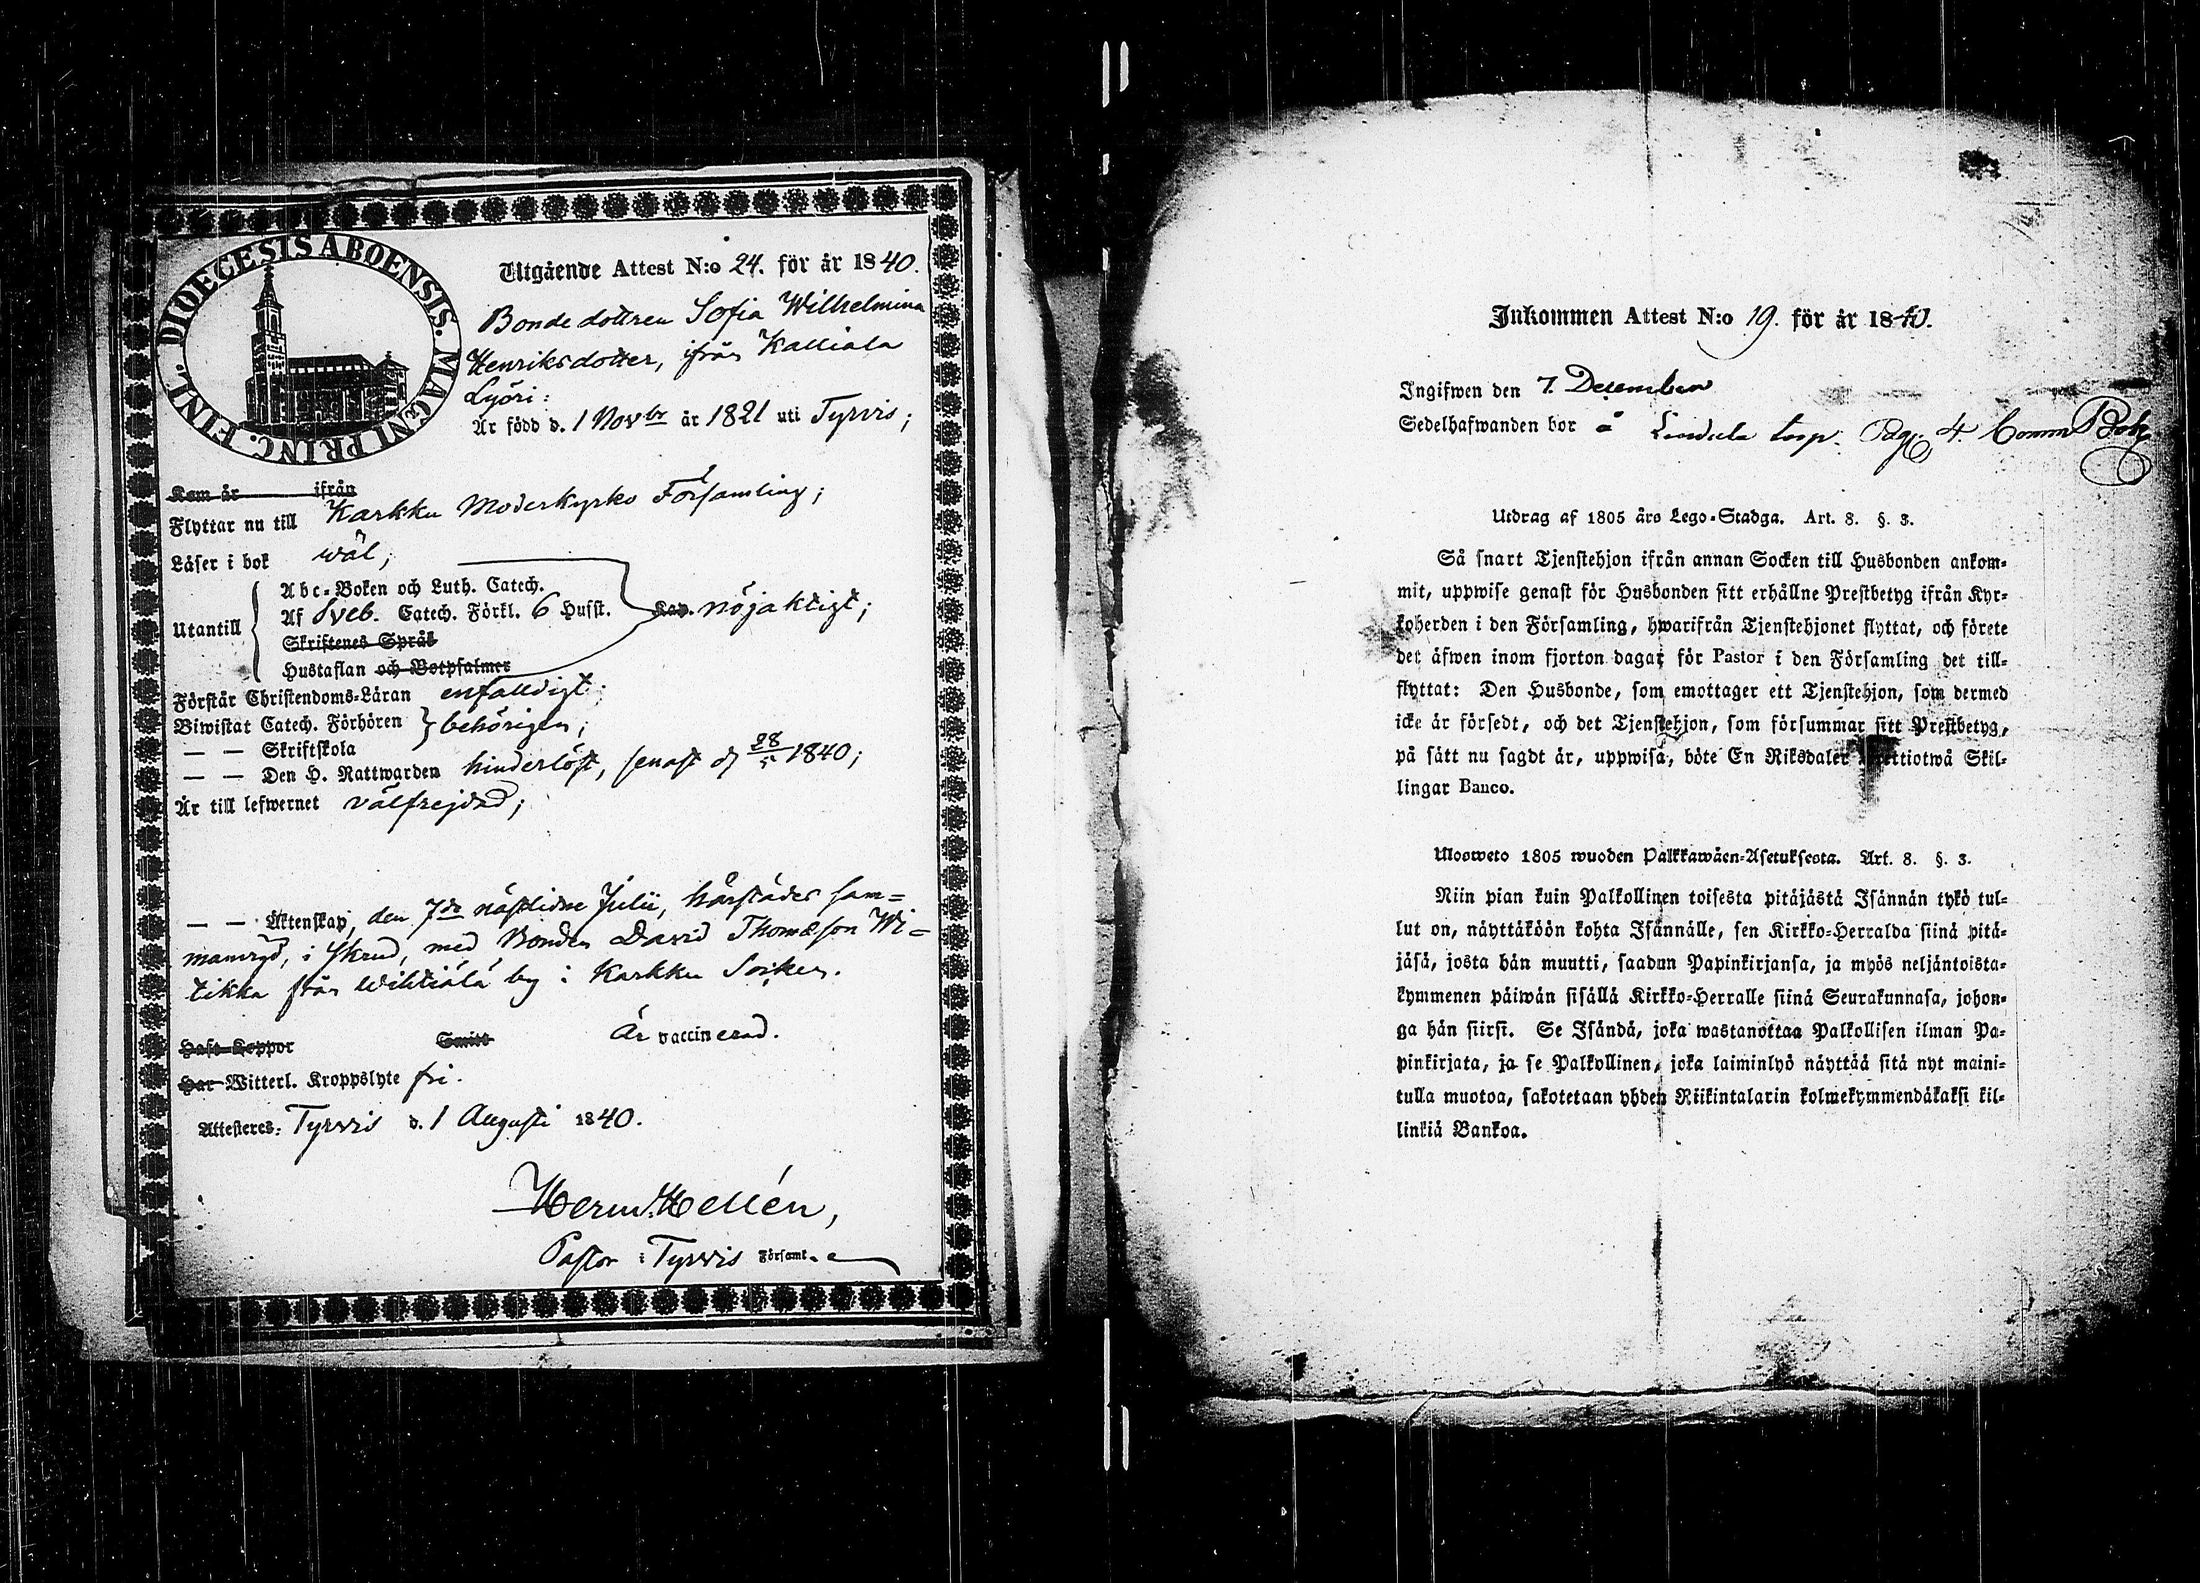 DIOECESIS ABOENSIS. MAGNI PRINC. FINL.
Utgående Attest N:o 24. för år 1840.
Bondedottren Sofia Wilhelmina
Henriksdotter, ifrån Kalliala
Lyöri:
Är född d. 1 Novbr år 1821 uti Tyrvis;
Kom år ifrån
Flyttar nu till Karkku Moderkyrko Församling;
Läser i bok wäl;
Abc-Boken och Luth. Catech.
Utantill Af Sveb. Catech. Förkl. 6 Hufst. Kap. nöjaktigt;
Skriftenes Språk
Hustaflan och Botpsalmer
Förstår Christendoms-Läran enfalldigt;
Biwistat Catech. Förhören } behörigen;
— — Skriftskola
— — Den H. Nattwarden hinderlöst, senast d. 28/5 1840;
Är till lefwernet välfrejdad;
— — Äktenskap, den 7de nästlidne Julii, härstädes sam=
manvigd, i Stånd, med Bonden David Thomasson Wi=
tikka från Wihtiälä by i Karkku Socken.
Haft Koppor Smitt Är vaccinerad.
Har Witterl. Kroppslyte fri.
Attesteres: Tyrvis d. 1 Augusti 1840.
Herm. Hellén,
Pastor i Tyrvis Församl.
Inkommen Attest N:o 19. för år 1840.
Ingifwen den 7. December
Sedelhafwanden bor å torp. Pag. 4. Comm Bok
Utdrag af 1805 års Lego-Stadga. Art. 8. §. 3.
Så snart Tjenstehjon ifrån annan Socken till Husbonden ankom=
mit, uppwise genast för Husbonden sitt erhållne Prestbetyg ifrån Kyr=
koherden i den Församling, hwarifrån Tjenstehjonet flyttat, och förete
det äfwen inom fjorton dagar för Pastor i den Församling det till=
flyttat: Den Husbonde, som emottager ett Tjenstehjon, som dermed
icke är försedt, och det Tjenstehjon, som försummar sitt Prestbetyg,
på sätt nu sagdt är, uppwisa, böte En Riksdaler Trettiotwå Skil=
lingar Banco.
Uloswето 1805 wuoden Palkkawäen-Asetuksesta. Art. 8. §. 3.
Niin pian kuin Palkollinen toisesta pitäjästä Isännän tykö tul=
lut on, näyttäköön kohta Isännälle, sen Kirkko-Herralda siinä pitä=
jäsä, josta hän muutti, saadun Papinkirjansa, ja myös neljäntoista=
kymmenen päiwän sisällä Kirkko-Herralle siinä Seurakunnasa, johon=
ga hän siirsi. Se Isändä, joka wastanottaa Palkollisen ilman Pa=
pinkirjata, ja se Palkollinen, joka laiminlyö näyttää sitä nyt maini=
tulla muotoa, sakotetaan yhden Riikintalarin kolmekymmendäkaksi kil=
linkiä Bankoa.